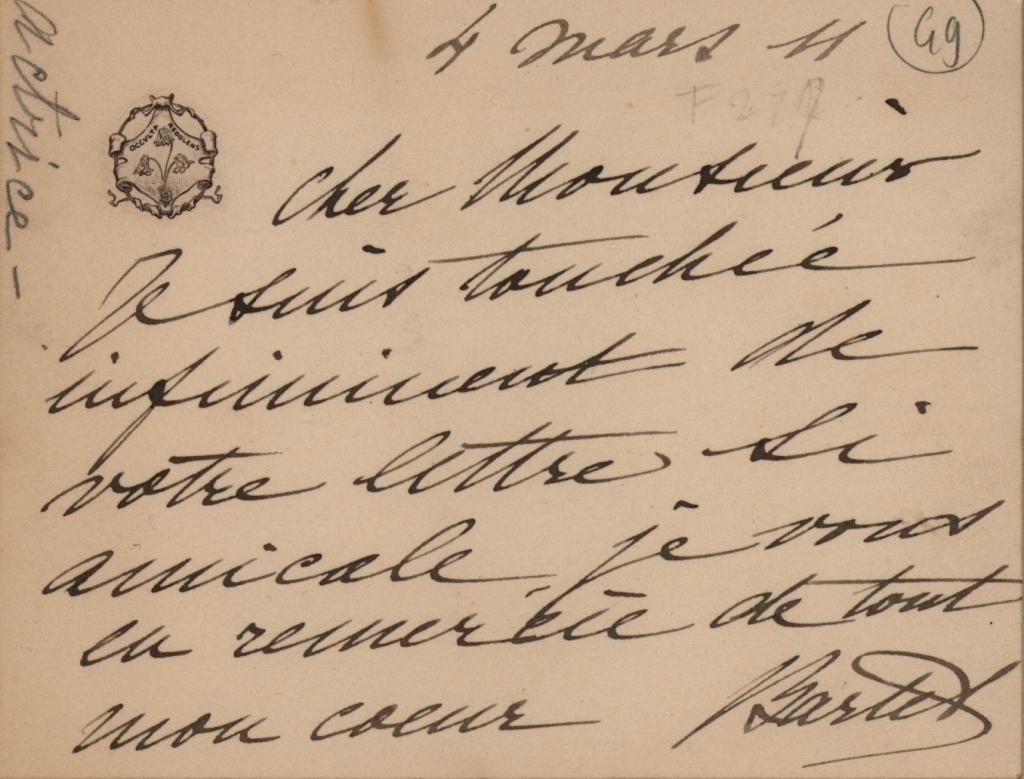 4 mars 11
49
F 277
actrice -
OCCULTA REDOLENS
cher Monsieur
Je suis touchée
infiniment de
votre lettre si
amicale, je vous
en remercie de tout
mon coeur Bartet